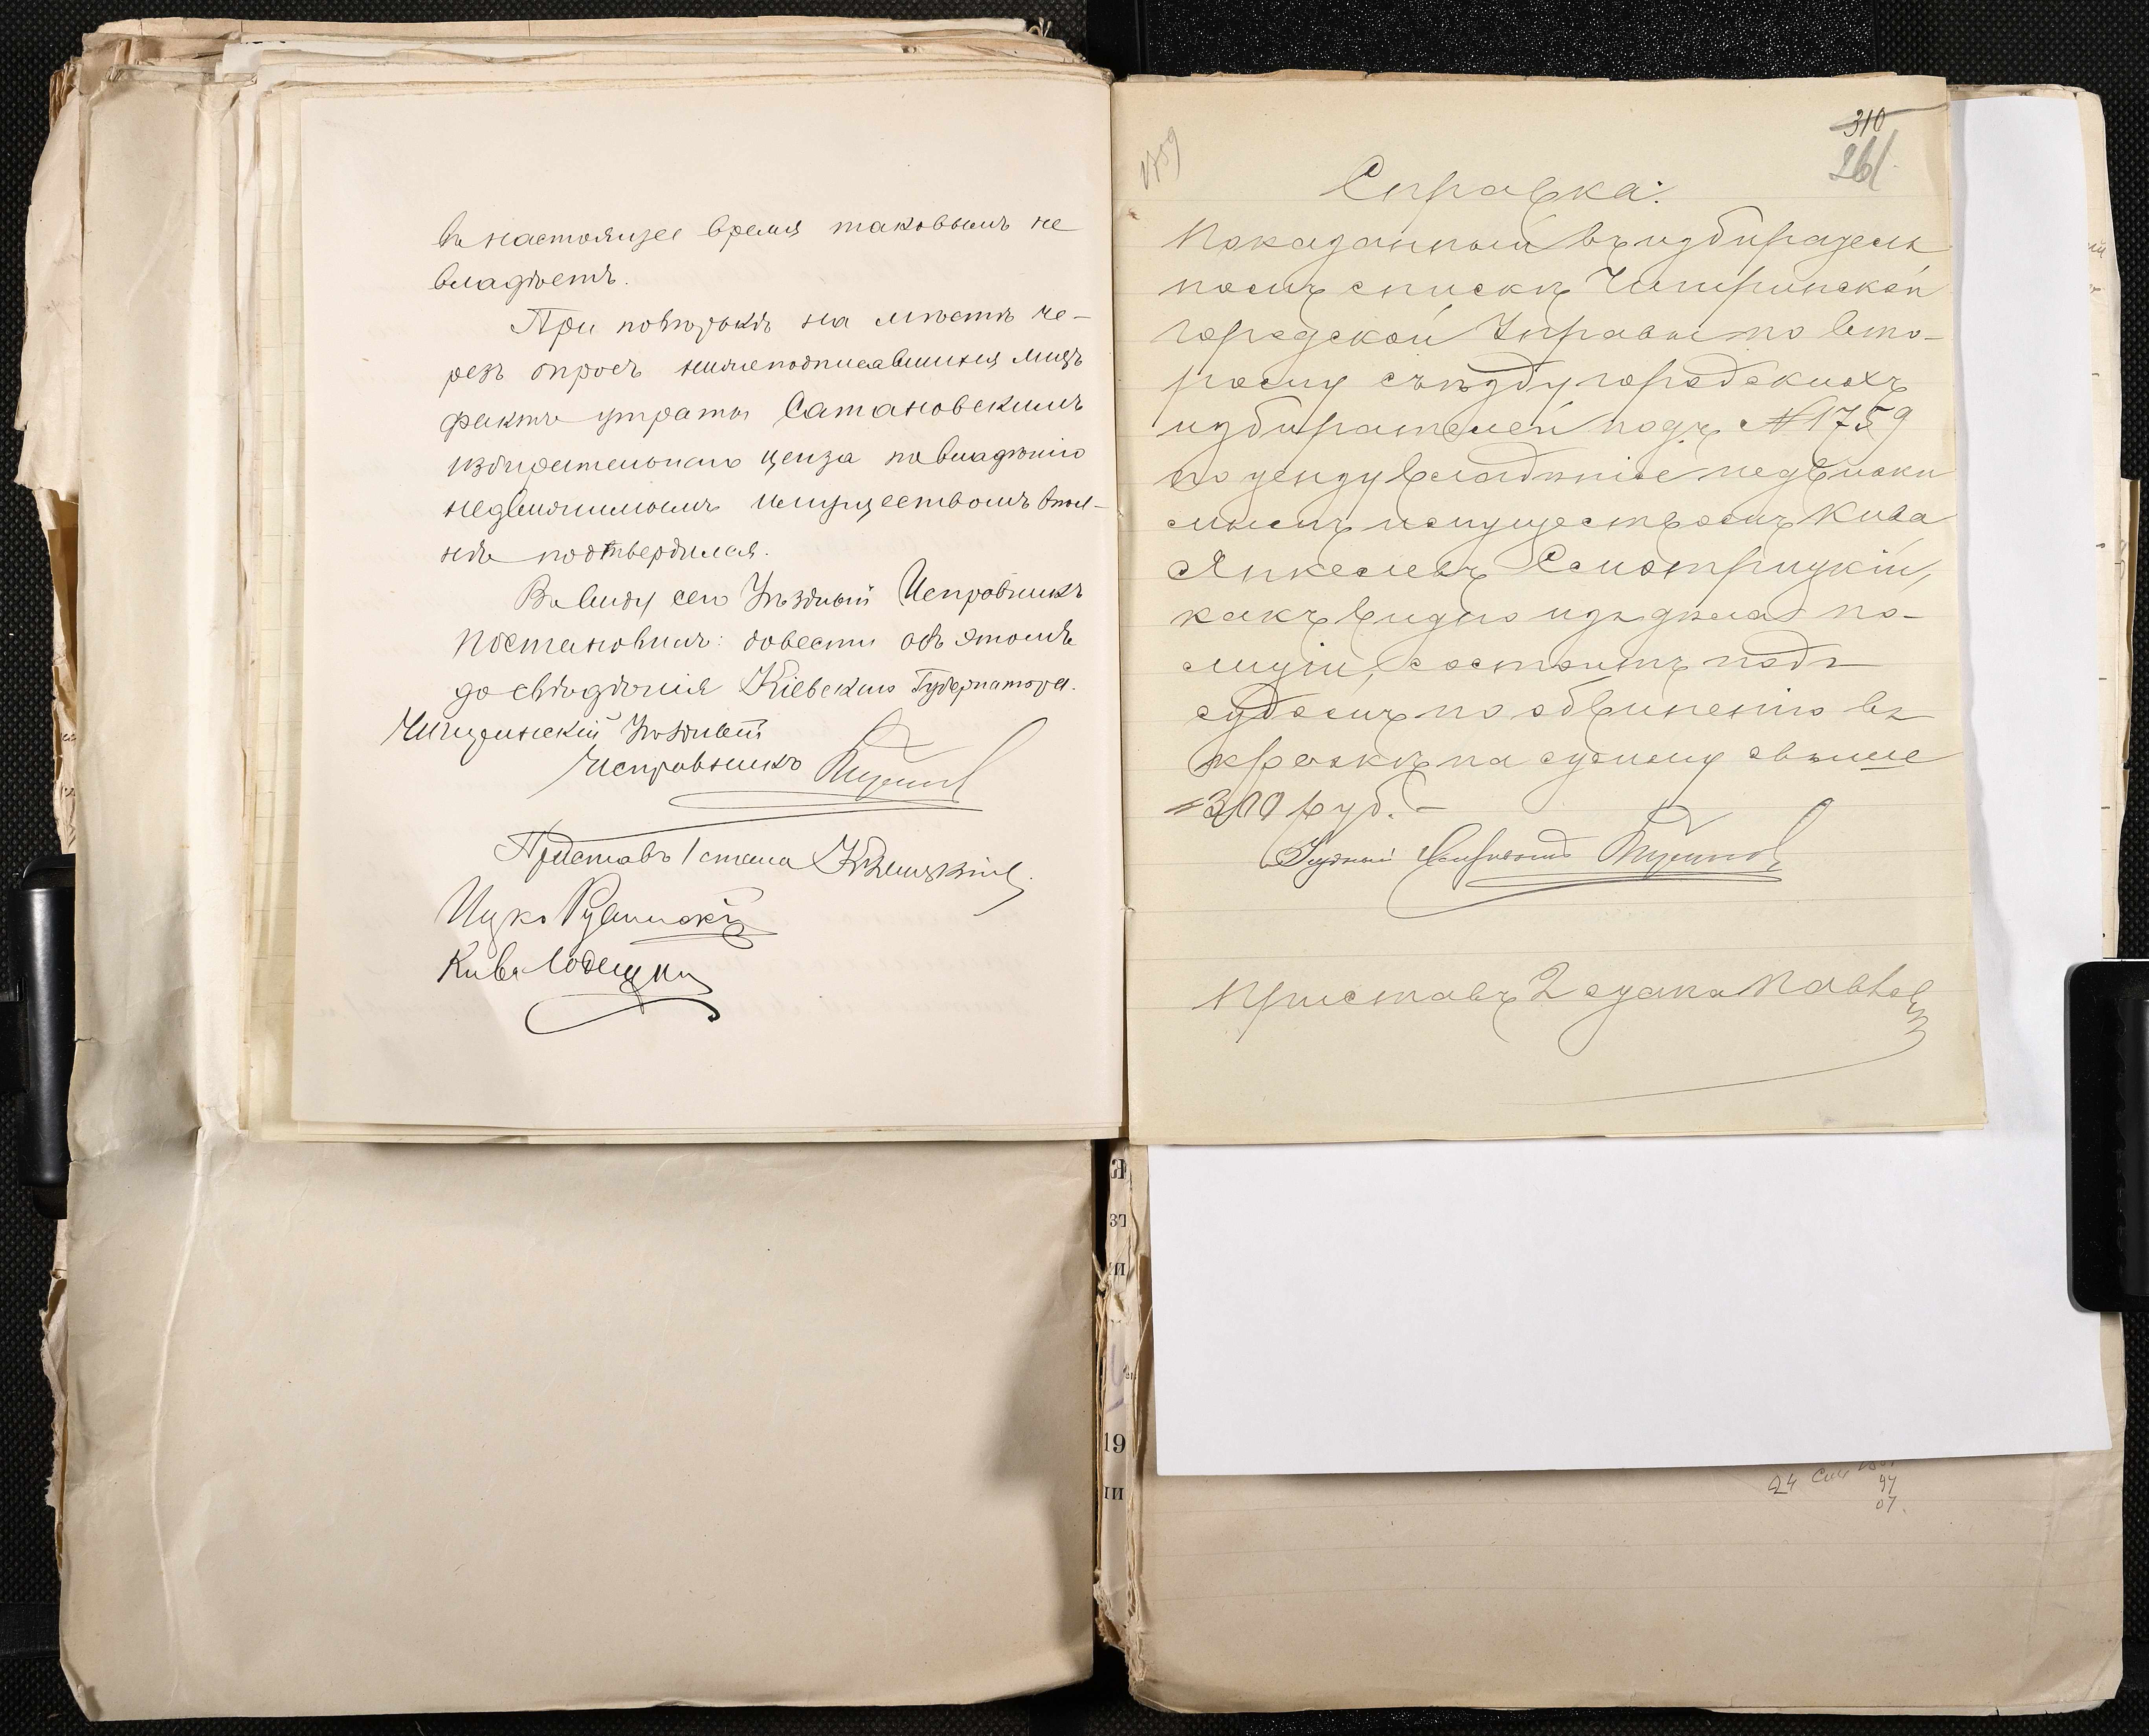 въ настоящее время таковымъ не
владѣетъ.
При повѣркѣ на мѣстѣ че-
резъ опросъ нижеподписавшихся лицъ
фактъ утраты Сатановскимъ
избирательнаго ценза по владѣнію
недвижимымъ имуществомъ впол-
нѣ подтвердился.
Въ виду сего Уѣздный Исправникъ
Постановилъ: довести объ этомъ
до свѣдѣнія Кіевскаго Губернатора.
Чигиринскій Уѣздный
Исправникъ
Приставъ 1 стана
Ицко
Кива
310
261
1759
Справка:
Показанный въ избиратель
номъ спискѣ Чигиринской
городской Управы по вто-
рому съѣзду городскихъ
избирателей подъ №1759
по цензу владѣніе недвижи
мымъ имуществомъ Кива
Янкелевъ Смотрицкій,
какъ видно изъ дѣла по-
лиціи, состоитъ подъ
судомъ по обвиненію въ
кражѣ на сумму свыше
300 руб.
Уѣздный Исправникъ
Приставъ 2 стана Павлов
24
94
07.
19